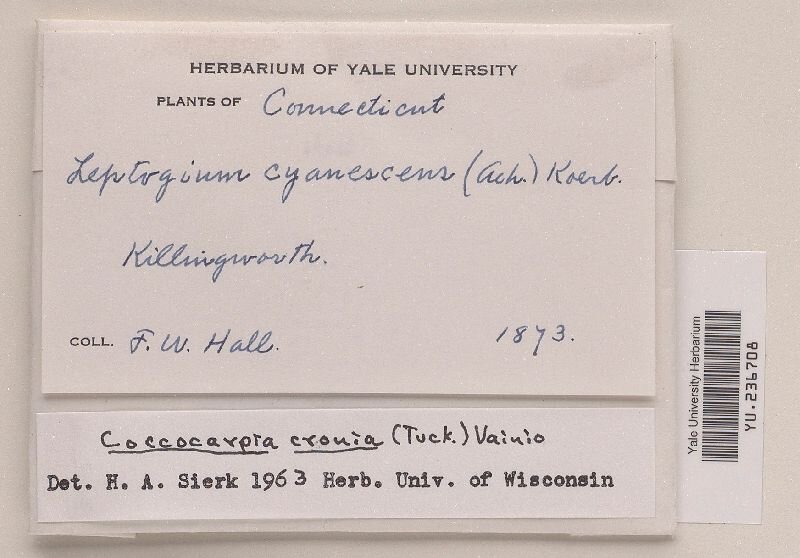 HERBARIUM OF YALE UNIVERSITY
PLANTS OF Connecticut
Leptogium cyanescens (Ach.) Koerb.
Killingworth.
COLL. F. W. Hall. 1873.
Coccocarpia cronia (Tuck.) Vainio
Det. H. A. Sierk 1963 Herb. Univ. of Wisconsin
Yale University Herbarium
YU.236708